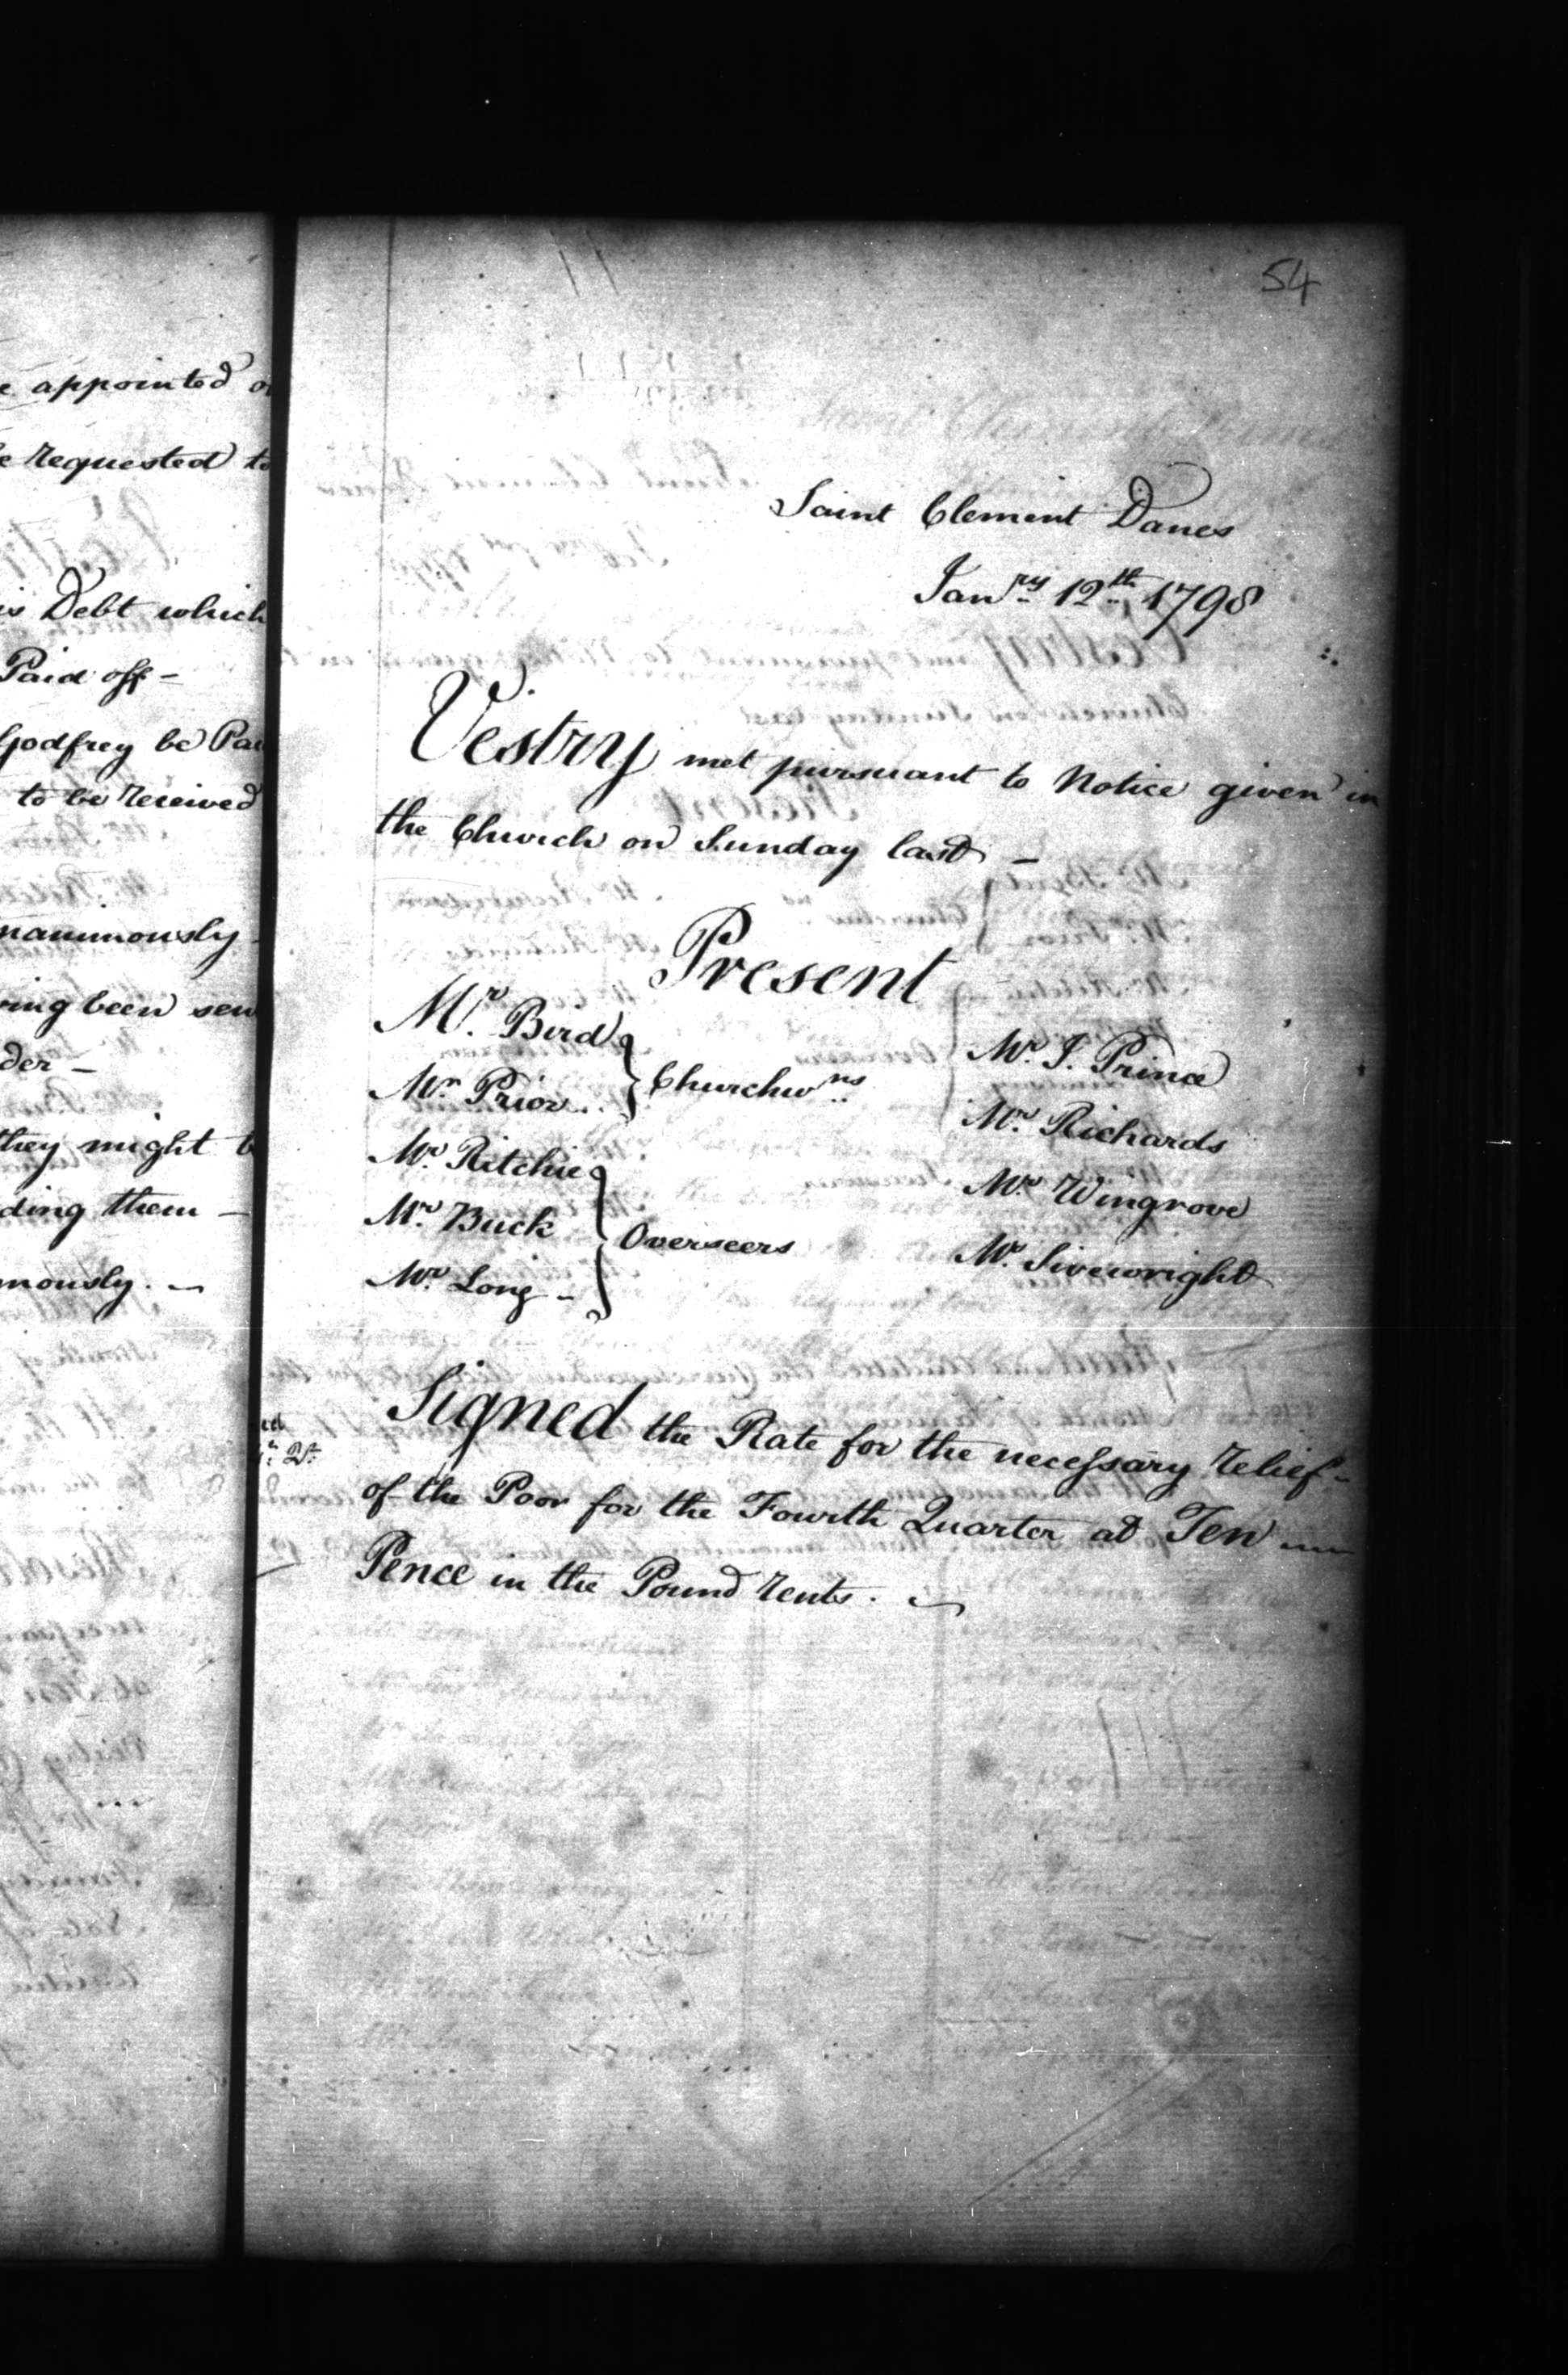 appointed
requested to
is Debt which
Paid off -
Godfrey be
to be received
been
der -
they might
ding them -
mously. -
54
Saint Clement Danes
Janry 12th 1798
Vestry met pursuant to Notice given in
the Church on Sunday last -
Present
Mr. Bird
Mr. Prior
Churchwns
Mr. Ritchie
Mr. Buck
Mr. Long -
Overseers
Mr. J. Prince
Mr. Richards
Mr. Wingrove
Mr. Sivewright
Signed the Rate for the necessary relief -
of the Poor for the Fourth Quarter at Ten
Pence in the Pound rents. -